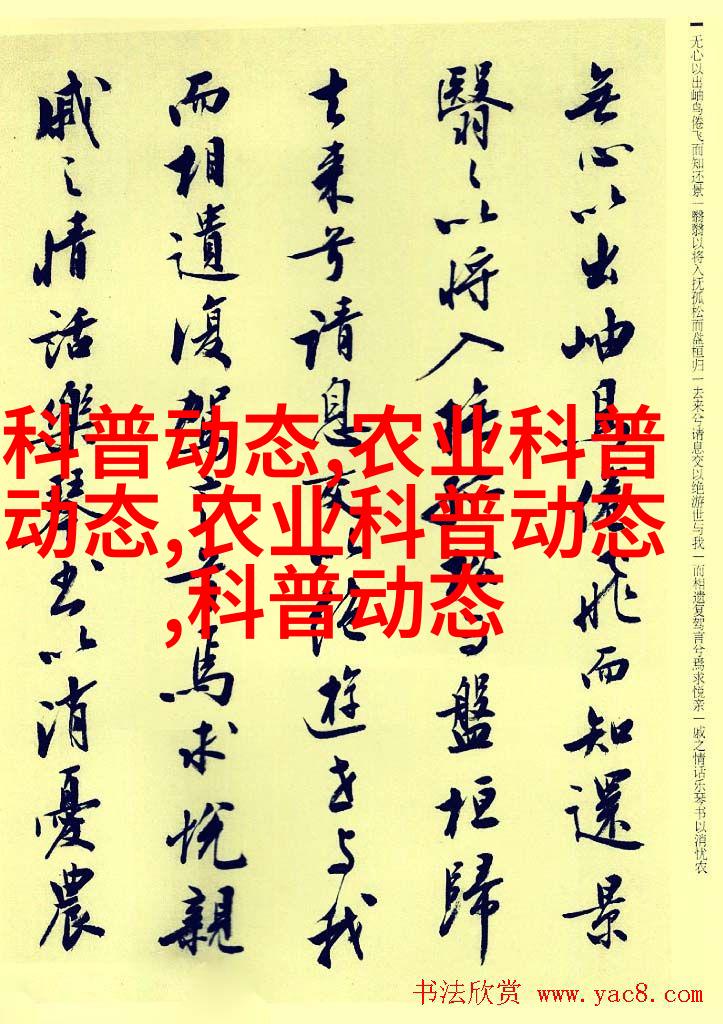 无心以出岫鸟倦飞而知还景一翳翳以将入抚孤松而盘桓归一去来兮请息交以绝游世与我一而相遗复驾言兮焉求悦亲一戚之情话乐琴书以消忧农
無心以出岫鳥倦飛而知還景
翳〻以将入撫孤松而盤桓歸
去来兮请息交以绝遊世与我
而相遺復駕言兮焉求悦親
戚〻情話樂琴書以消憂農
科普动态,农业科普
动态,农业科普动态
,科普动态
书法欣赏 www.yac8.com